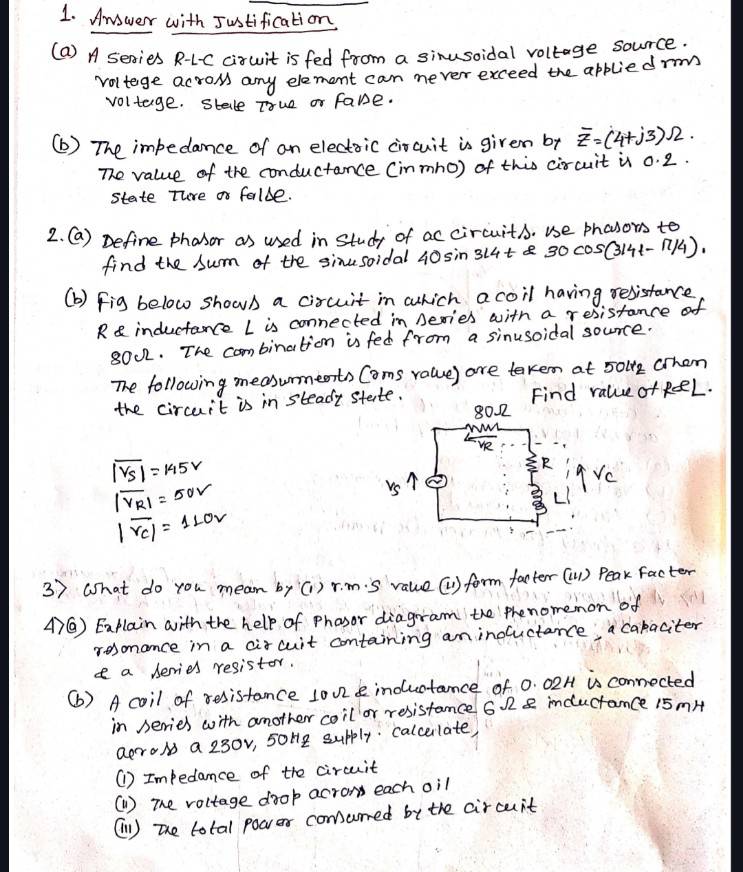 1. Answer with Justification
(a) A Series R-L-C circuit is fed from a sinusoidal voltage source.
voltage across any element can never exceed the applied rms
voltage. State True or False.
(b) The impedance of an electric circuit is given by Z̄=(4+j3)Ω.
The value of the conductance (in mho) of this circuit is 0.2.
State Ture or false.
2.(a) Define phasor as used in study of ac circuits. use phasors to
find the sum of the sinusoidal 40 sin 314t & 30 cos(314t-π/4).
(b) Fig below shows a circuit in which a coil having resistance
R & inductance L is connected in series with a resistance of
80Ω. The combination is fed from a sinusoidal source.
The following measurments (rms value) are taken at 50Hz when
the circuit is in steady state. Find value of R&L.
80Ω
VR
|Vs| = 145V
|VR| = 50V
|Vc| = 110V
Vs
R
L
Vc
3> What do you mean by (i) r.m.s value (ii) form factor (iii) Peak Factor
4>(a) Explain with the help of Phasor diagram the Phenomenon of
resonance in a circuit containing an inductance, a capaciter
& a series resistor.
(b) A coil of resistance 10Ω & inductance of 0.02H is connected
in series with another coil or resistance 6Ω & inductance 15mH
across a 230V, 50Hz supply. calculate,
(i) Impedance of the circuit
(ii) The voltage drop across each oil
(iii) The total power consumed by the circuit